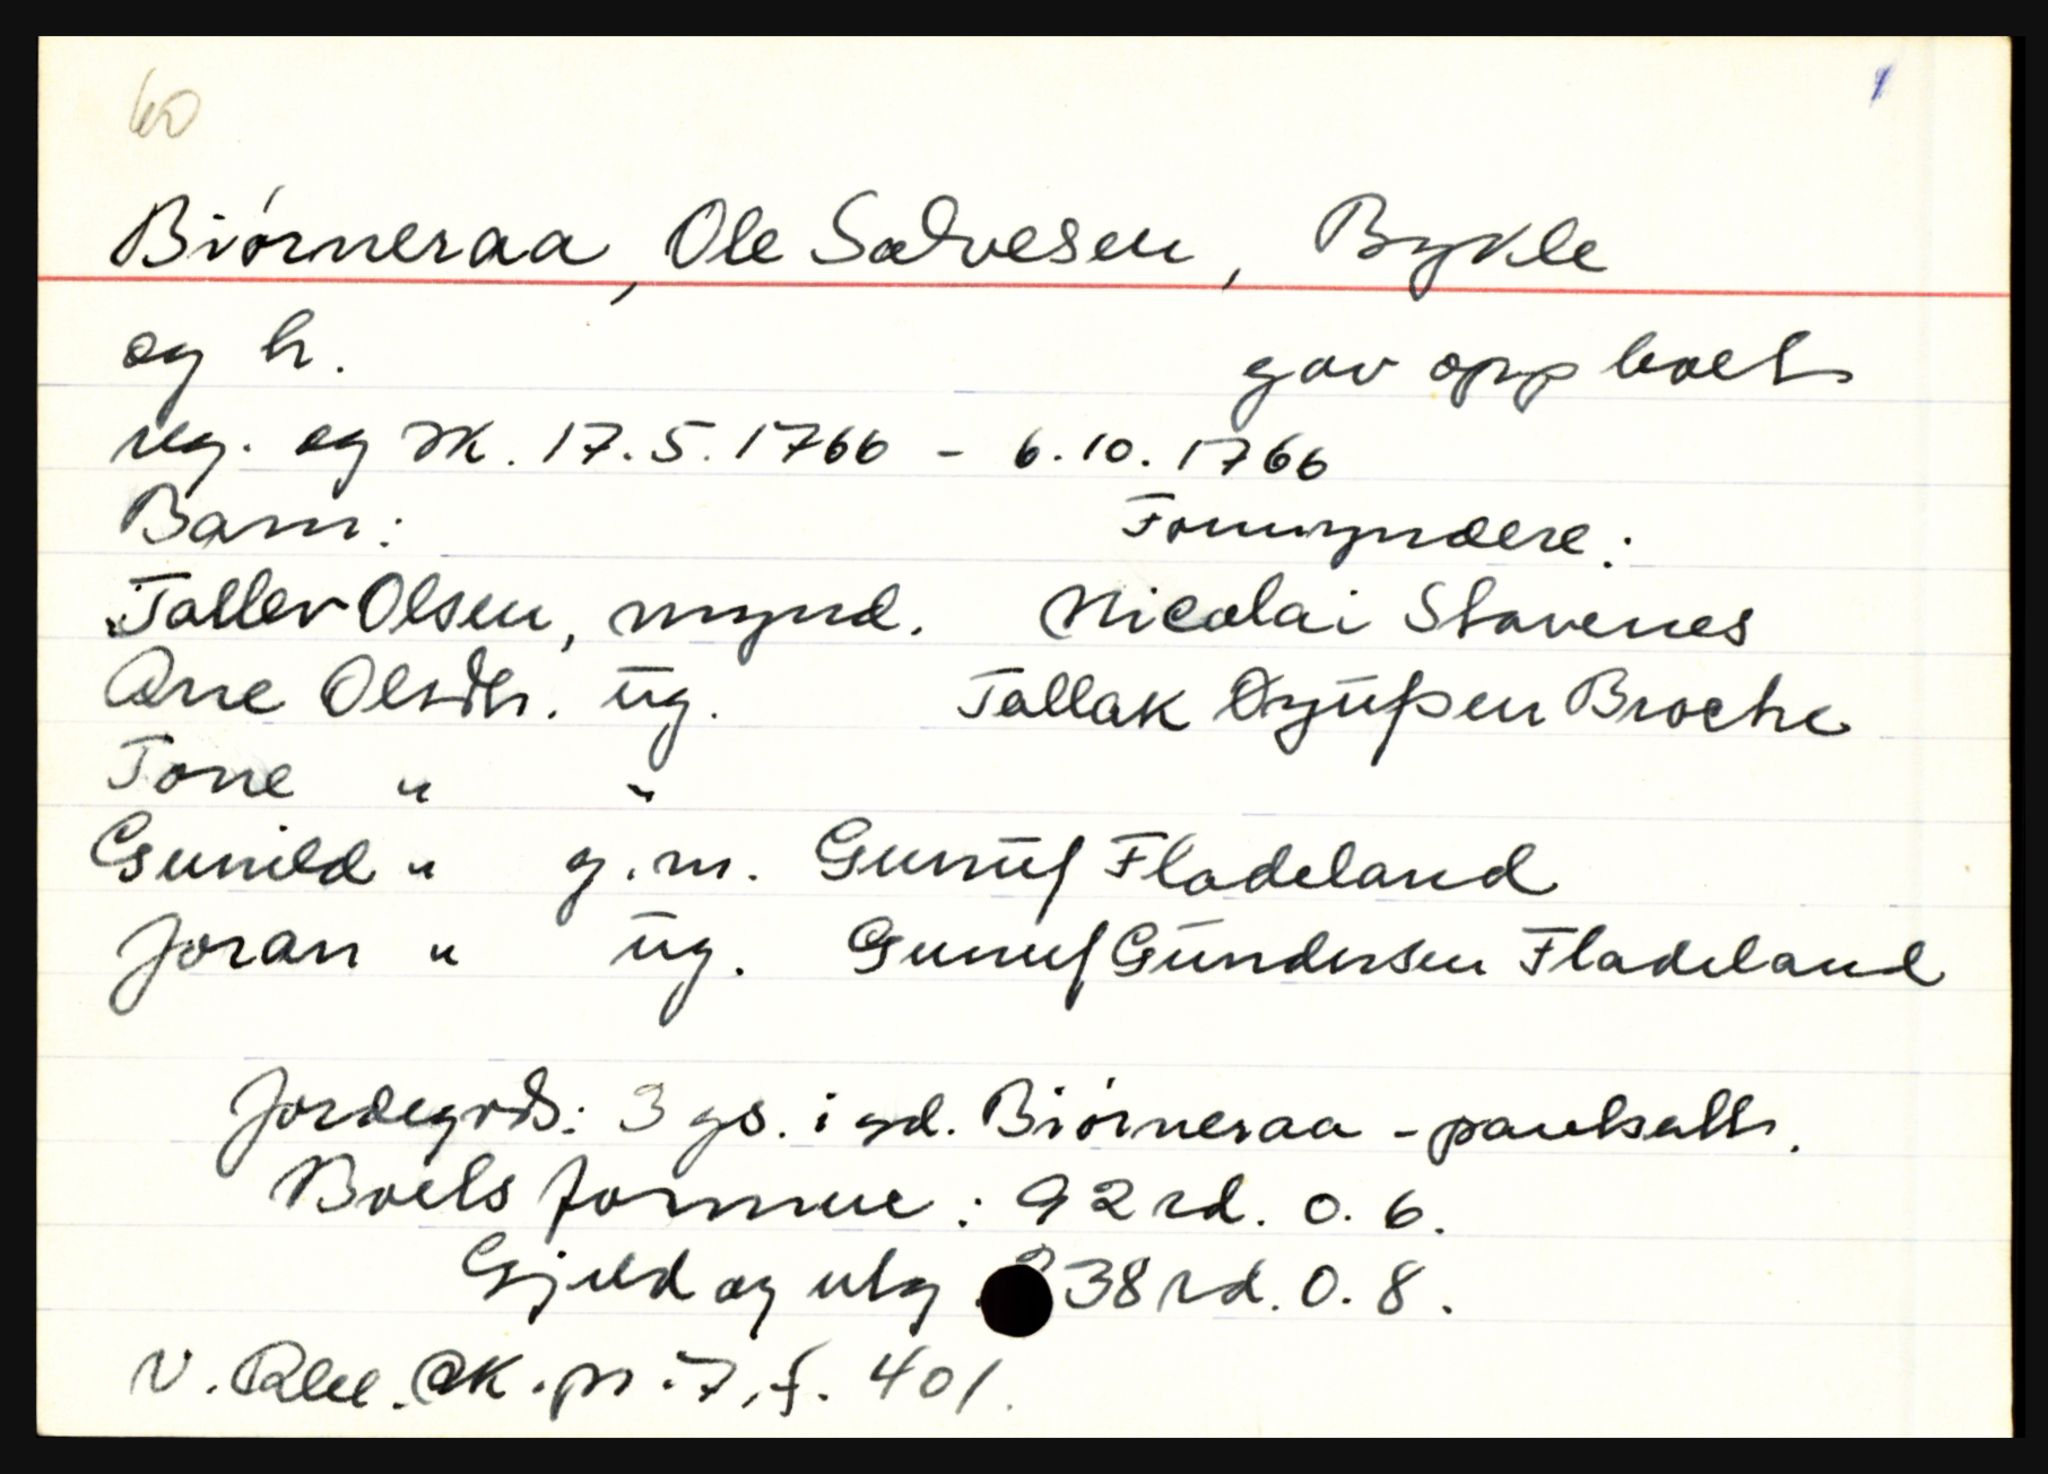 60
Biórneraa, Ole Salvesen, Bykle
og h. gav opp boet
reg. og sk. 17.5.1766 - 6.10.1766
Barn: Formyndere:
Tallev Olsen, mynd. Nicolai Stavenes
Ane Olsdtr. ug. Tallak Broche
Tone " "
Gunild " g.m. Gunuf Fladeland
Joran " ug. Gunuf Gundersen Fladeland
Jordegods: 3 gs. i gd. Biórneraa - pantsatt.
Boets formue: 92 rd. 0. 6.
Gjeld og utg 38 rd. 0. 8.
V. Rbl. sk. pr. 7, f. 401.